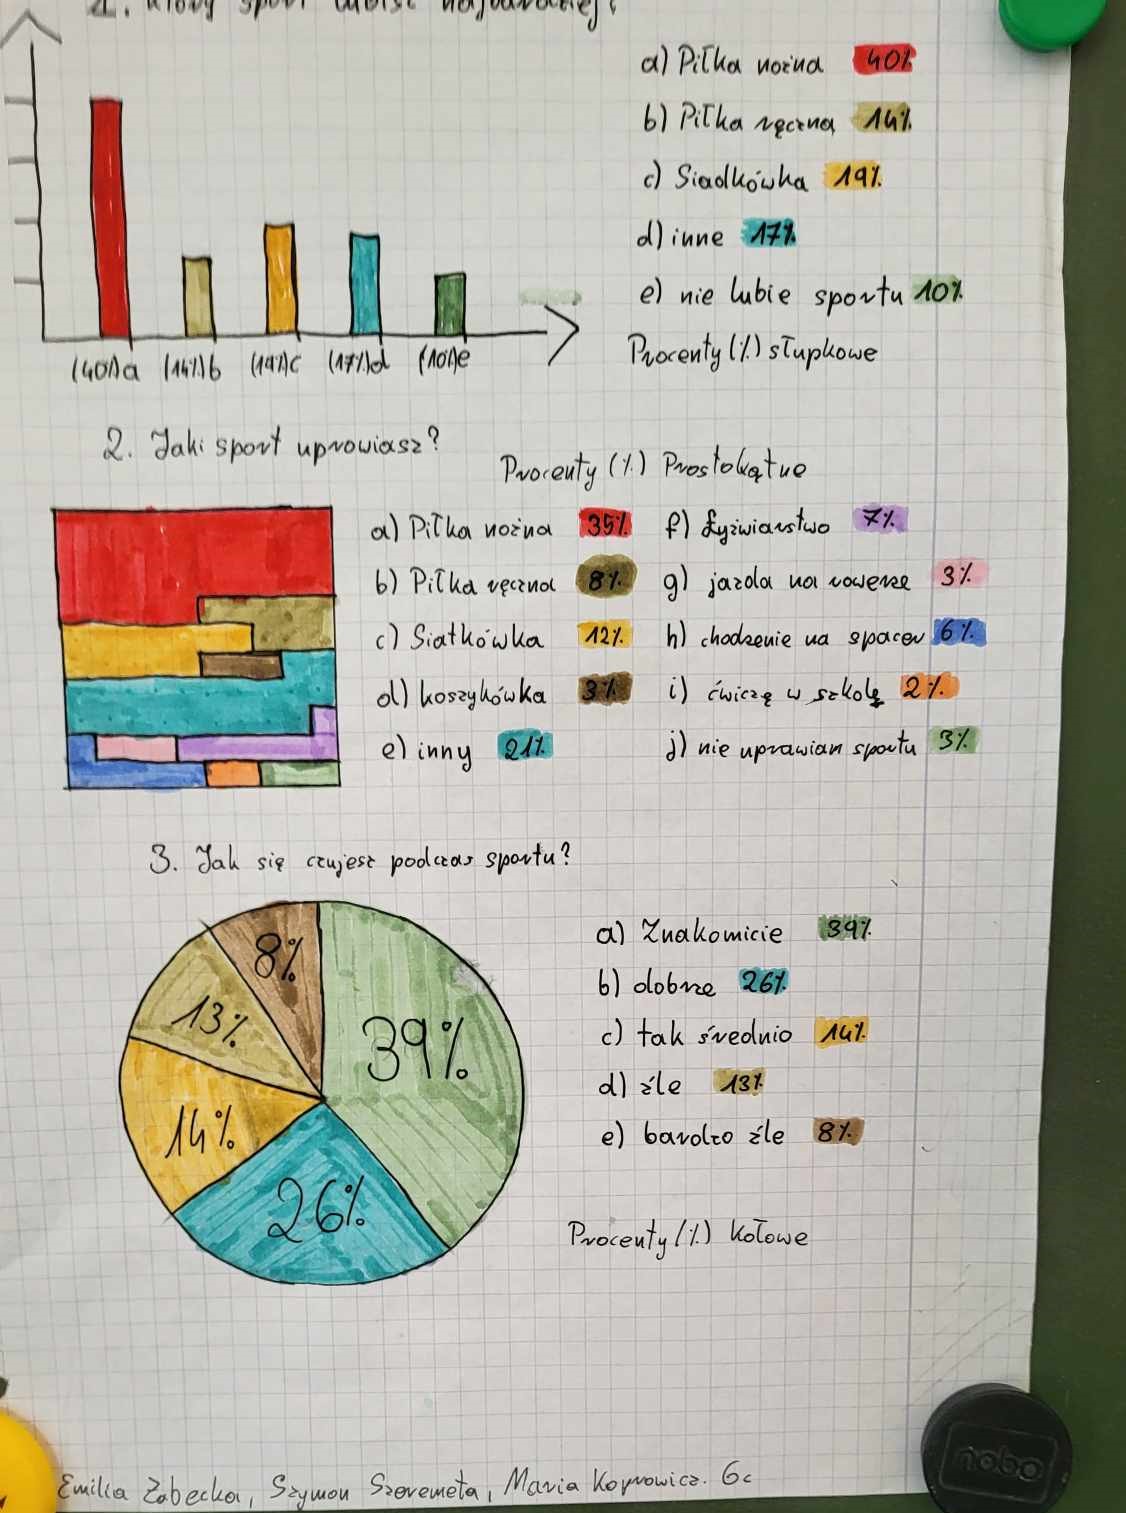 1. Który sport lubisz najbardziej?
a) Piłka nożna 40%
b) Piłka ręczna 14%
c) Siadkówka 19%
d) inne 17%
e) nie lubie sportu 10%
(40%)a (14%)b (19%)c (17%)d (10%)e
Procenty (%) słupkowe
2. Jaki sport uprawiasz?
Procenty (%) Prostokątne
a) Piłka nożna 35%
b) Piłka ręczna 8%
c) Siatkówka 12%
d) koszykówka 3%
e) inny 21%
f) Łyżwiarstwo 7%
g) jazda na rowerze 3%
h) chodzenie na spacer 6%
i) ćwiczę w szkole 2%
j) nie uprawiam sportu 3%
3. Jak się czujesz podczas sportu?
8%
13%
39%
14%
26%
a) Znakomicie 39%
b) dobrze 26%
c) tak średnio 14%
d) źle 13%
e) bardzo źle 8%
Procenty (%) kołowe
nobo
Emilia Zabecka, Szymon Szeremeta, Maria Koprowicz. 6c